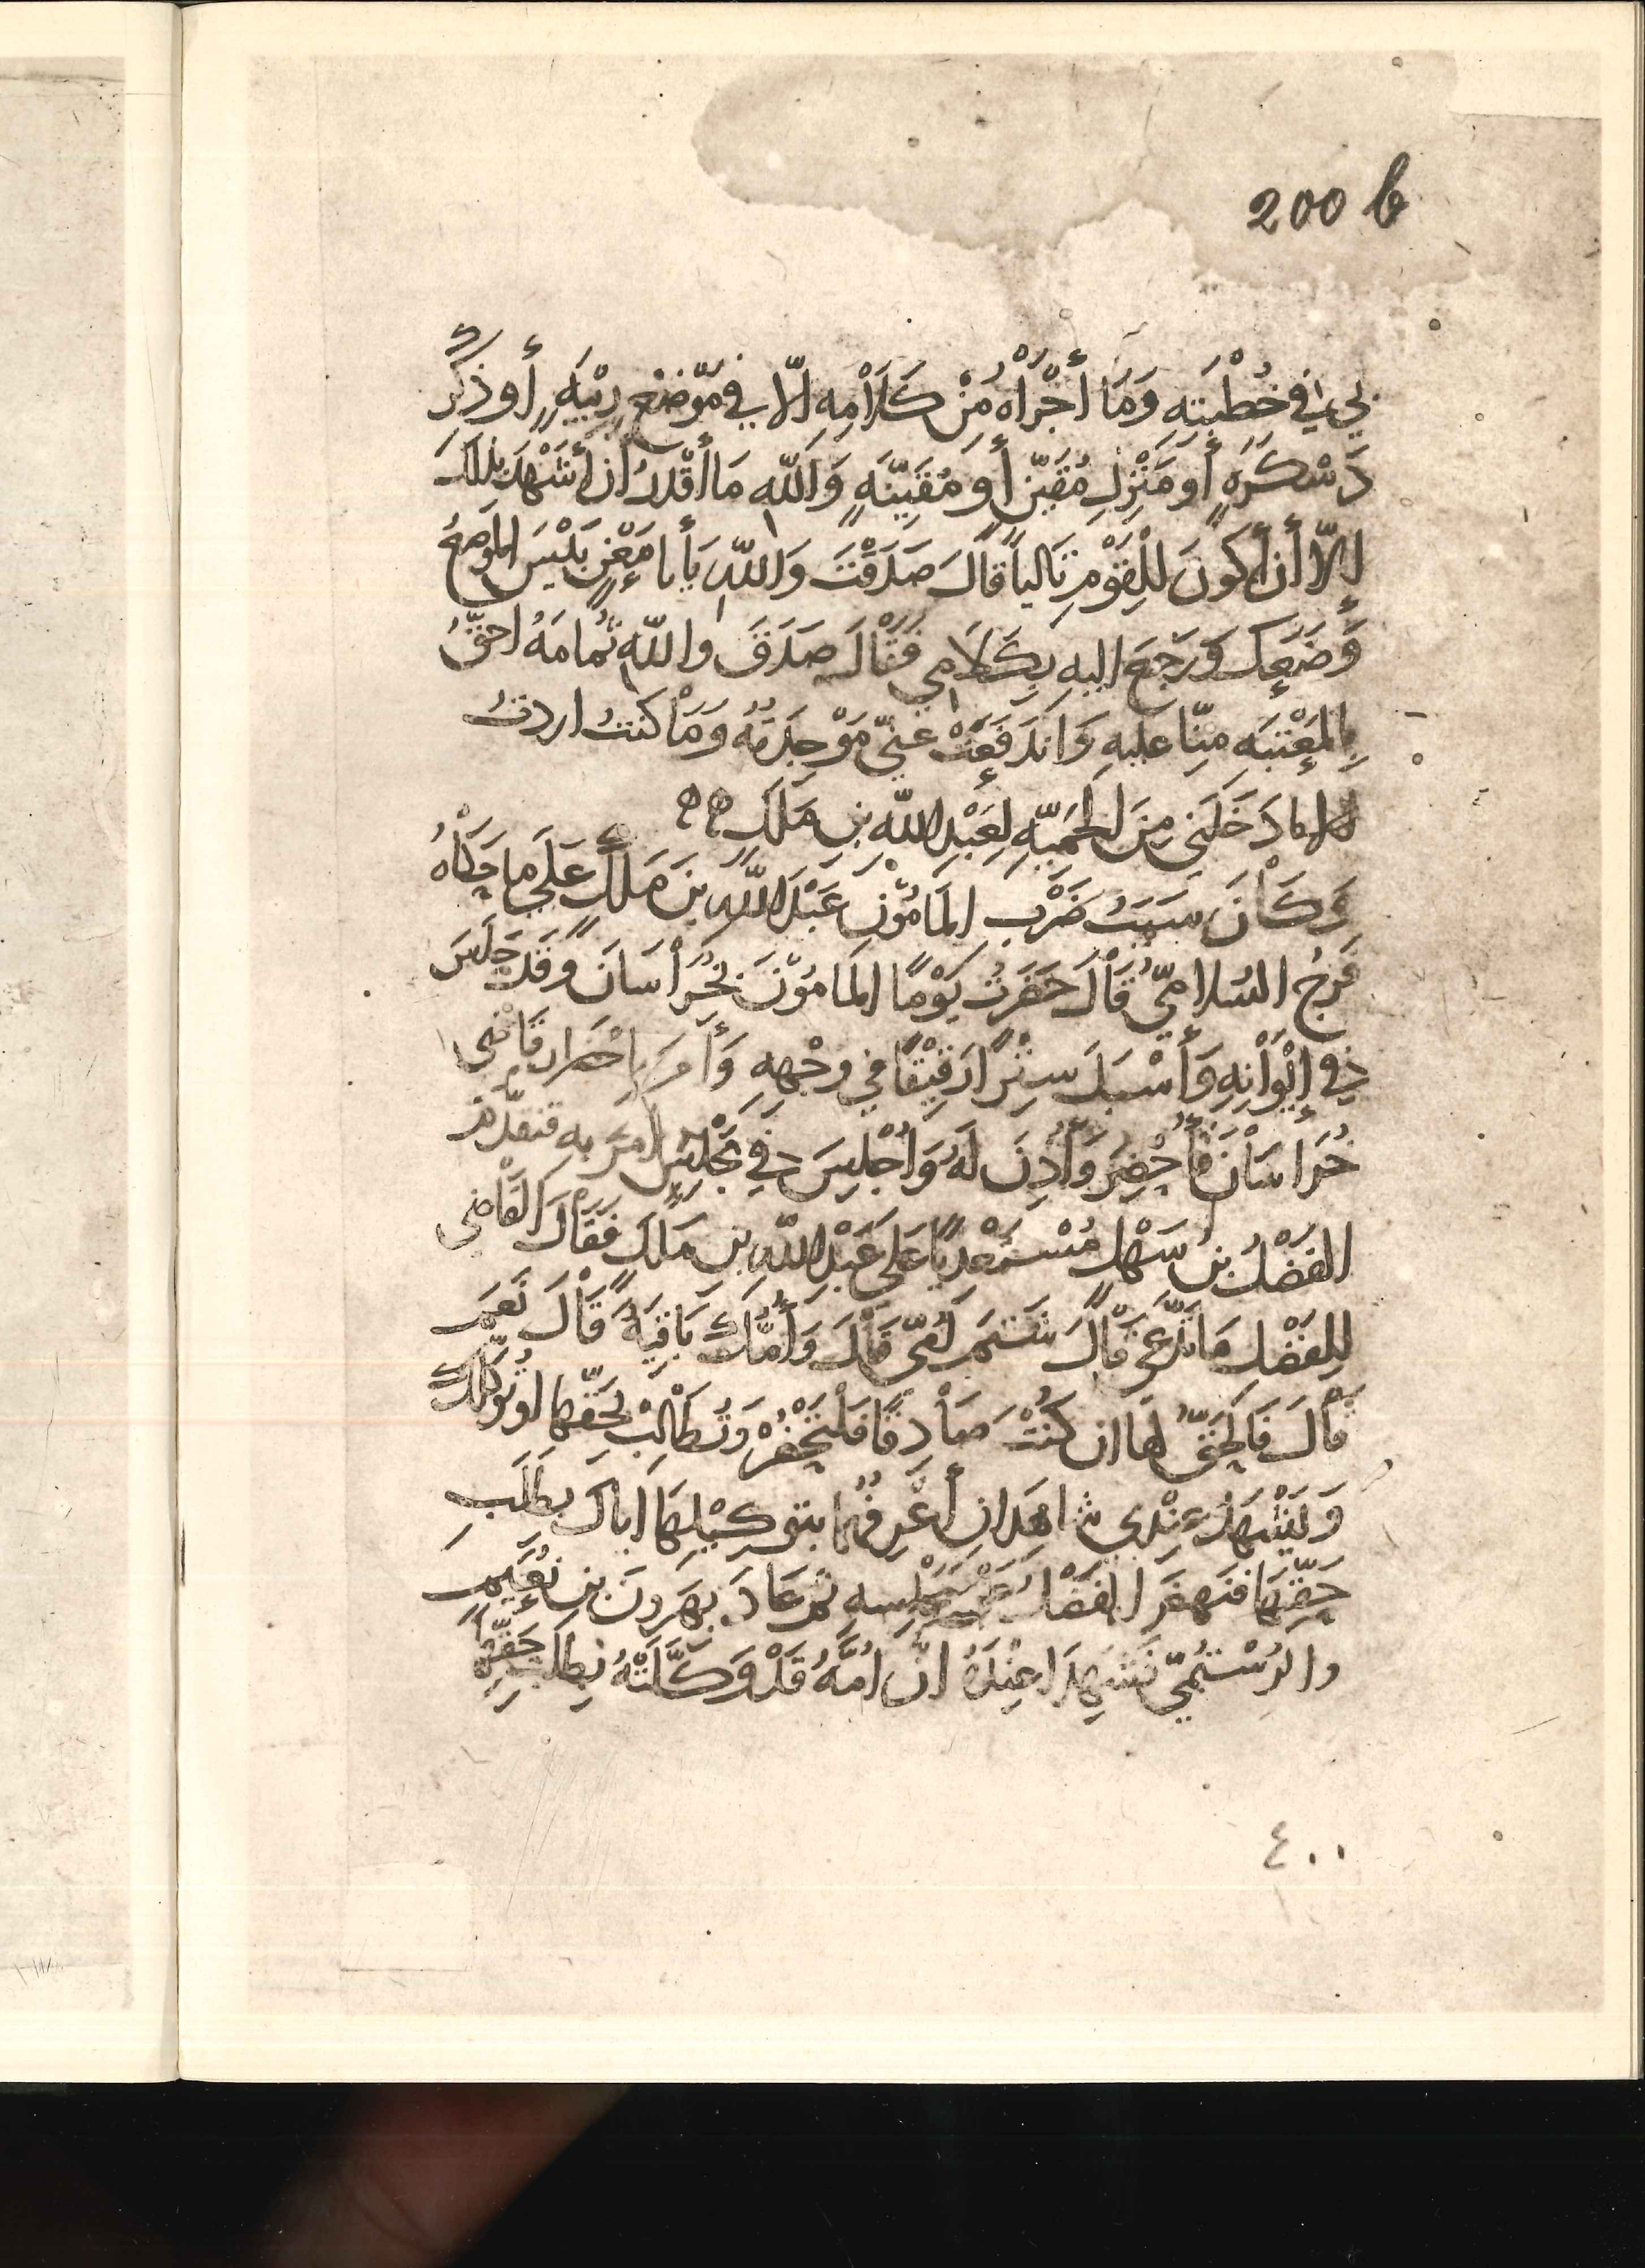 200 b
بي في خُطْبَتِهِ وَمَا أَجْرَاهُ مِنْ كَلَامِهِ إلّا في مَوْضِعِ رِيْبَةٍ أَو ذِكْرِ
دَسْكَرَةٍ أَو مَنْزِلِ مُقَيِّنٍ أَو مُقَيِّنَةٍ وَاللّهِ مَا أَقْدِرُ أن أَشْهَدَ بذلك
إلّا أن أَكونَ لِلْقَوْمِ ثَالِثاً قَالَ صَدَقْتَ وَاللّهِ يَأبا مَعْنٍ بَئِيْسَ المَوضِعُ
وَضَعَكَ وَرَجَعَ اليهِ بِكَلَامِي فَقَالَ صَدَقَ واللّهِ ثُمامَهُ احَقُّ
بِالمَعْتَبَه مِنّا عليهِ وَانْدَفَعَتْ عَنّي مَوْجِدَتُهُ وَمَا كنتُ اردتُ
لما دَخَلَنِي مِنَ الحَمِيّهِ لِعَبْدِ اللّهِ بنِ مَلِكٍ
وَكَانَ سَبَبُ ضَرْبِ المَامُوْنِ عَبْدَ اللّهِ بنَ مَلِكٍ عَلَى ما حَكَاهُ
فَرَجُ السُلامِيُّ قَالَ حَضَرتُ يَوْمًا المَامُوْنَ بِخُرَاسَانَ وقَد جَلَسَ
في إيْوَانِهِ وَأَسْبَلَ سِتْرًا رَقِيْقًا في وجْهِهِ وَأَمَرَ بِإحْضَارِ قَاضِي
خُرَاسَانَ فأُحْضِرَ وَأُذِنَ لَهُ وَاُجْلِسَ في مَجْلِسٍ امَرَ به فتقدّم
الفَضْلُ بنُ سَهْلٍ مُسْتَعْدِيًا عَلى عَبْدِ اللّهِ بنِ مَلِكٍ فَقَالَ القَاضِي
لِلفَضْلِ مَا تَدَّعِي قَالَ شَتَمَ اُمّي قَالَ وَأُمُّكَ بَاقِيَةٌ قَالَ نَعَمَ
قَالَ فَالحَقُّ لها ان كُنْتَ صَادِقًا فَلْتَحْضُرْ وَتُطَالِبْ بحَقِّها او تُوَكِّلكَ
وَيَشْهَدُ عِنْدِي شاهِدانِ أَعْرِفُهُما بتوكِيْلِهَا اياكَ بطَلَبِ
حَقِّهَا فنَهضَ الفَضْلُ عَنْ مَجْلِسهِ ثم عَادَ بِهَرونَ بنِ نُعَيمٍ
والرُسْتُمِيّ فَشَهِدَا عِنْدَهُ انّ اُمَّهُ قَدْ وَكَّلَتْهُ بِطَلَبِ حَقِّهَا
٤٠٠